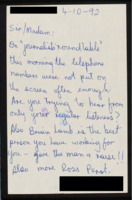 4-10-92
Sir/Madam:
On "journalists roundtable"
this morning the telephone
numbers were not put on
the screen often enough.
Are you trying to hear from
only your regular listeners?
Also Brian Lamb is the best
person you have working for
you - give the man a raise!!
Also more Ross Perot.